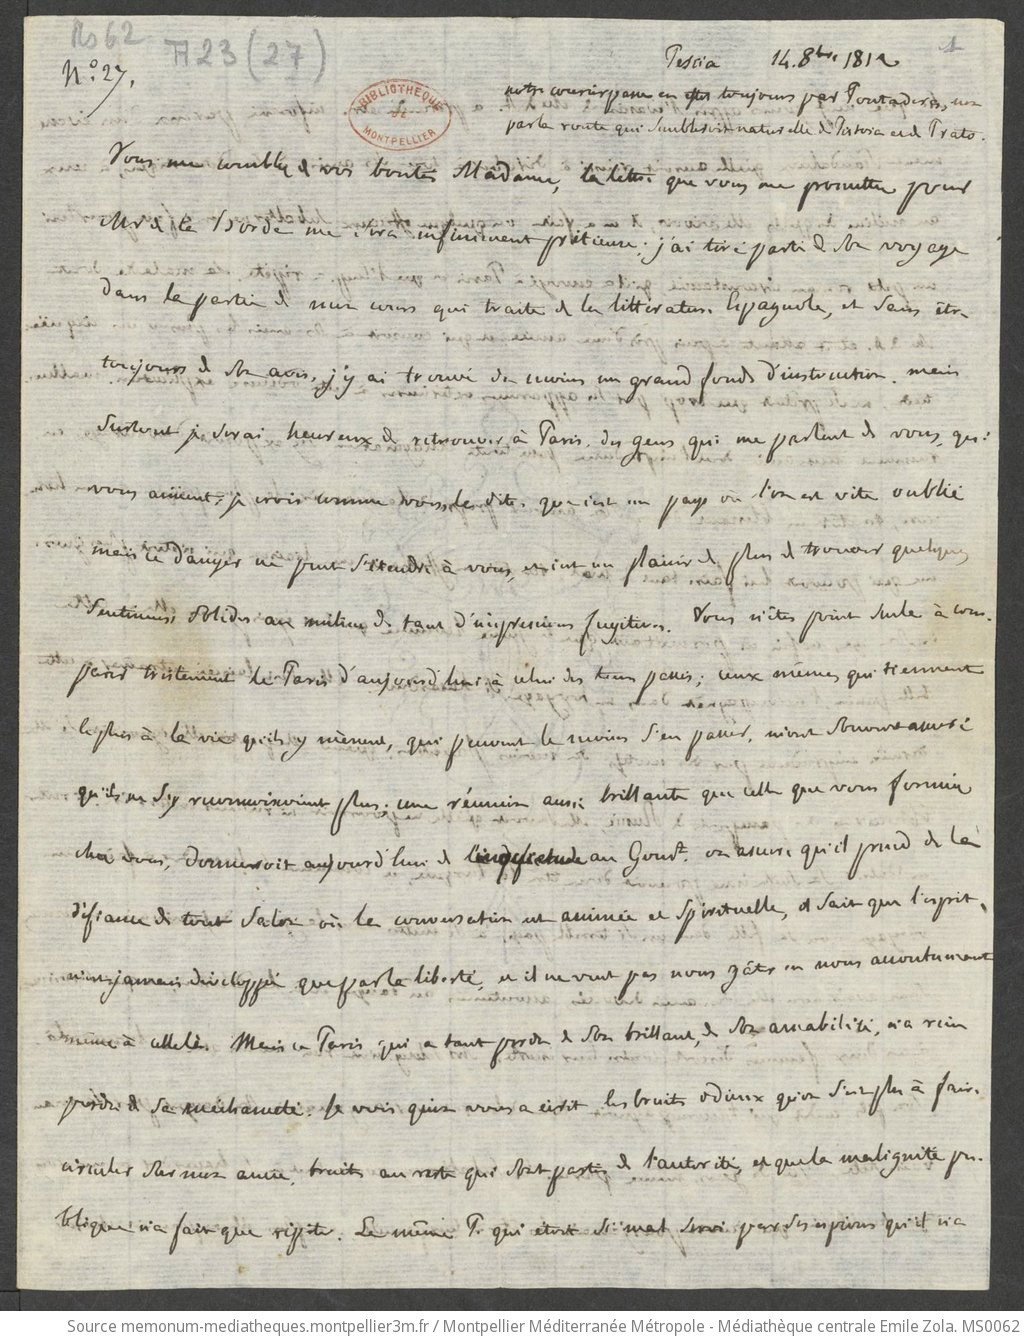 Rs 62
A 23 (27)
1
N.º 27.
BIBLIOTHEQUE
DE
MONTPELLIER
Pescia 14. 8bre 1812
notre courier passe en toujours par Pontadera, non
par la route qui sembleroit naturelle de Pistoia et de Prato.
Vous me comblez de vos bontés Madame, la lettre que vous me promettez pour
Mr de la Borde me sera infiniment prétieuse; j'ai tiré parti de son voyage
dans la partie de mon cours qui traite de la littérature Espagnole, et sans être
toujours de son avis, j'y ai trouvé du moins un grand fonds d'instruction. mais
surtout je serai heureux de retrouver à Paris des gens qui me parlent de vous, qui
vous aiment; je crois comme vous le dites que c'est un pays où l'on est vite oublié
mais ce danger ne peut s'étendre à vous, et c'est un plaisir de plus de trouver quelques
sentimens solides au milieu de tant d'impressions fugitives. Vous n'êtes point seule à com-
parer tristement le Paris d'aujourd'hui à celui des tems passés; ceux mêmes qui tiennent
le plus à la vie qu'ils y mènent, qui peuvent le moins s'en passer, m'ont souvent assuré
qu'ils ne s'y reconnoissoient plus. une réunion aussi brillante que celle que vous formiez
chez vous, donneroit aujourd'hui de l'inquietude au Gouvt. on assure qu'il prend de la
défiance de tout salon où la conversation est animée et spirituelle, il sait que l'esprit
n'est jamais développé que par la liberté, et il ne veut pas nous gâter en nous accoutumant
même à celle là. Mais ce Paris qui a tant perdu de son brillant, de son amabilité, n'a rien
perdu de sa méchanceté. Je vois qu'on vous a écrit les bruits odieux qu'on s'est plu à faire
circuler sur mon amie, bruits au reste qui sont partis de l'autorité, et que la malignité pu-
blique n'a fait que répéter. Le même P. qui étoit si mal servi par ses espions qu'il n'a
Source memonum-mediatheques.montpellier3m.fr / Montpellier Méditerranée Métropole - Médiathèque centrale Emile Zola. MS0062